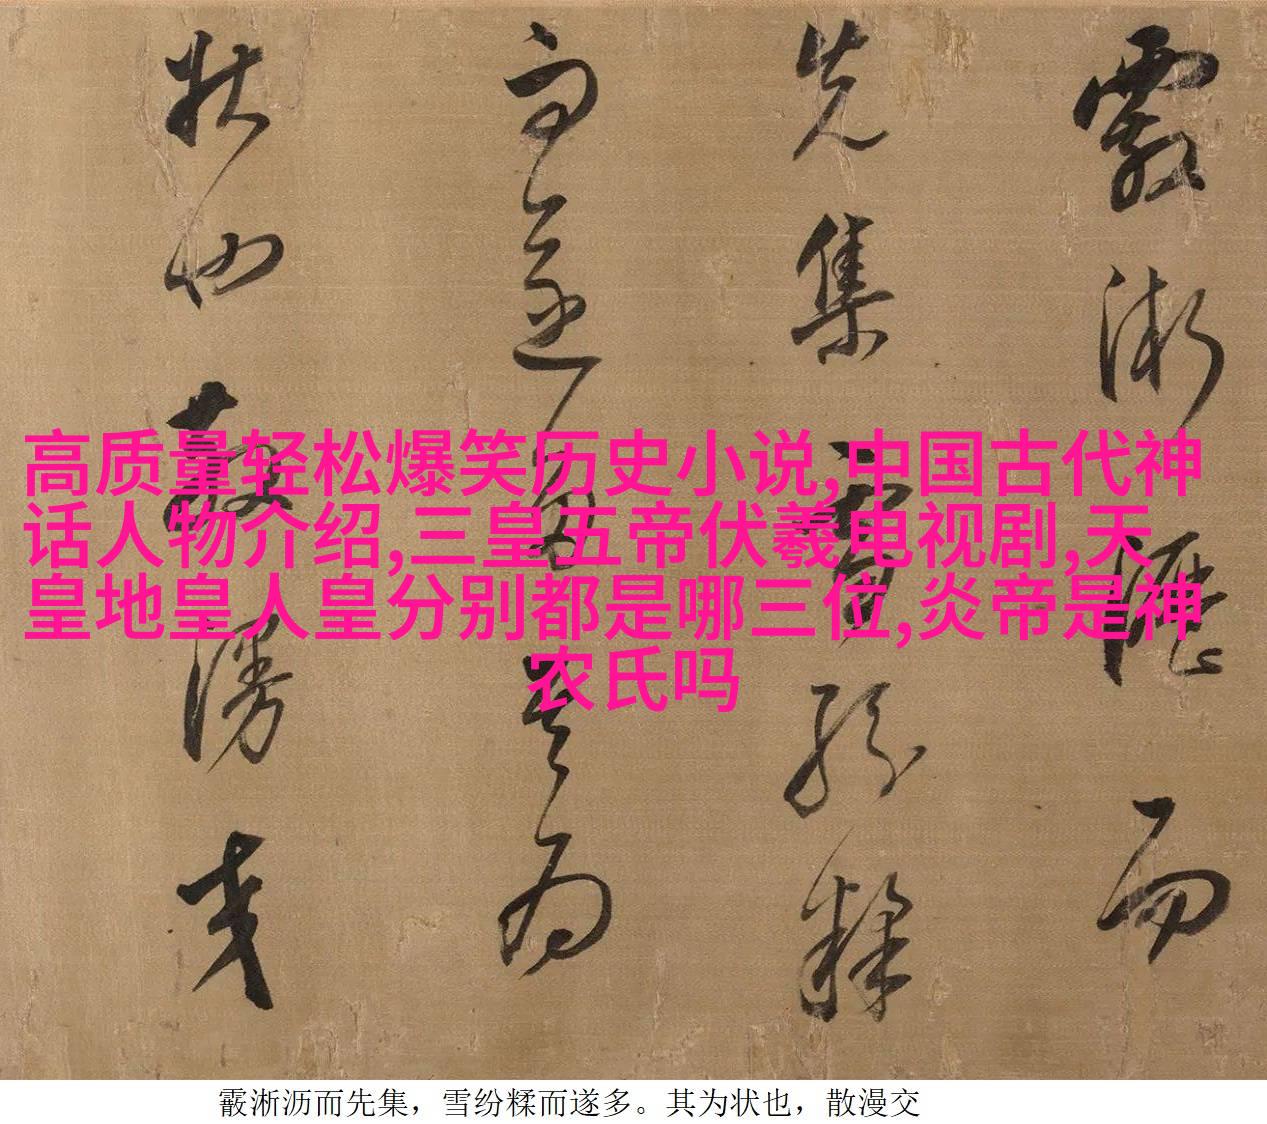 霰淅瀝而
先集雪紛糅
而遂多其為
狀也散漫交
高质量轻松爆笑历史小说,中国古代神
话人物介绍,三皇五帝伏羲电视剧,天
皇地皇人皇分别都是哪三位,炎帝是神
农氏吗
霰淅沥而先集，雪纷糅而遂多。其为状也，散漫交